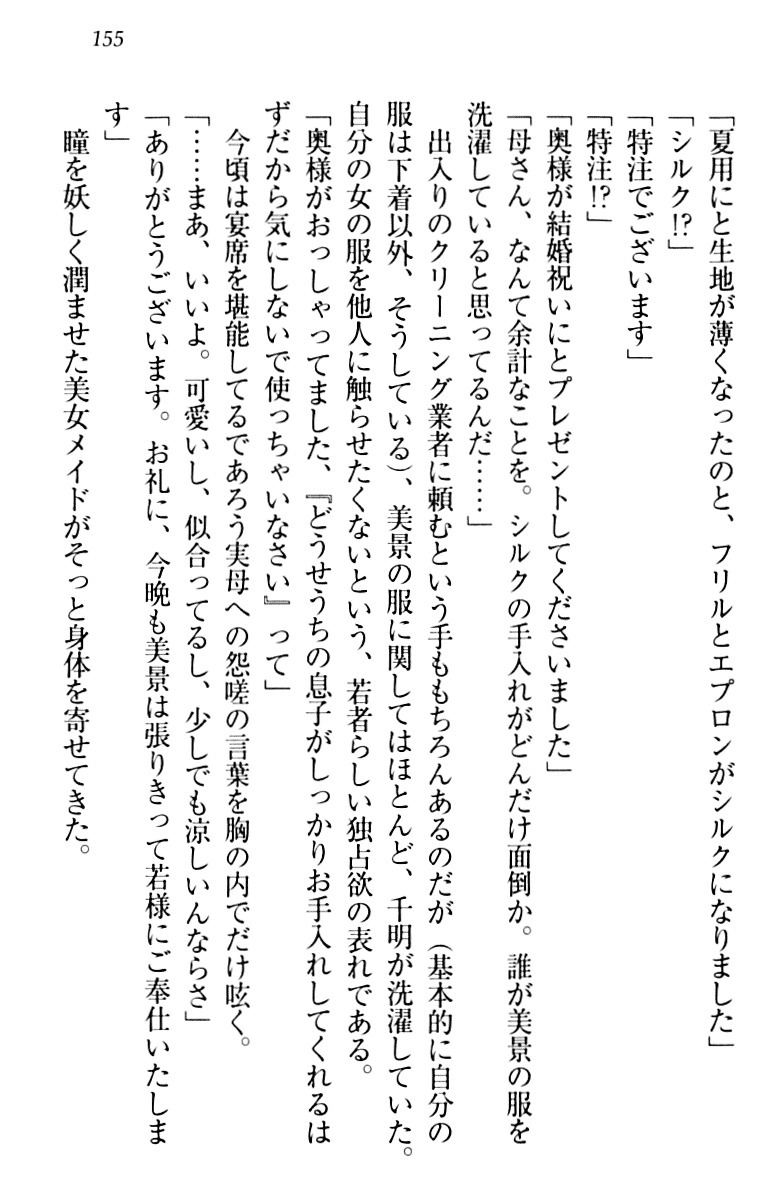 155
「夏用にと生地が薄くなったのと、フリルとエプロンがシルクになりました」
「シルク!?」
「特注でございます」
「特注!?」
「奥様が結婚祝いにとプレゼントしてくださいました」
「母さん、なんて余計なことを。シルクの手入れがどんだけ面倒か。誰が美景の服を
洗濯していると思ってるんだ……」
出入りのクリーニング業者に頼むという手ももちろんあるのだが（基本的に自分の
服は下着以外、そうしている）、美景の服に関してはほとんど、千明が洗濯していた。
自分の女の服を他人に触らせたくないという、若者らしい独占欲の表れである。
「奥様がおっしゃってました、『どうせうちの息子がしっかりお手入れしてくれるは
ずだから気にしないで使っちゃいなさい』って」
今頃は宴席を堪能してるであろう実母への怨嗟の言葉を胸の内でだけ呟く。
「……まあ、いいよ。可愛いし、似合ってるし、少しでも涼しいんならさ」
「ありがとうございます。お礼に、今晩も美景は張りきって若様にご奉仕いたしま
す」
瞳を妖しく潤ませた美女メイドがそっと身体を寄せてきた。